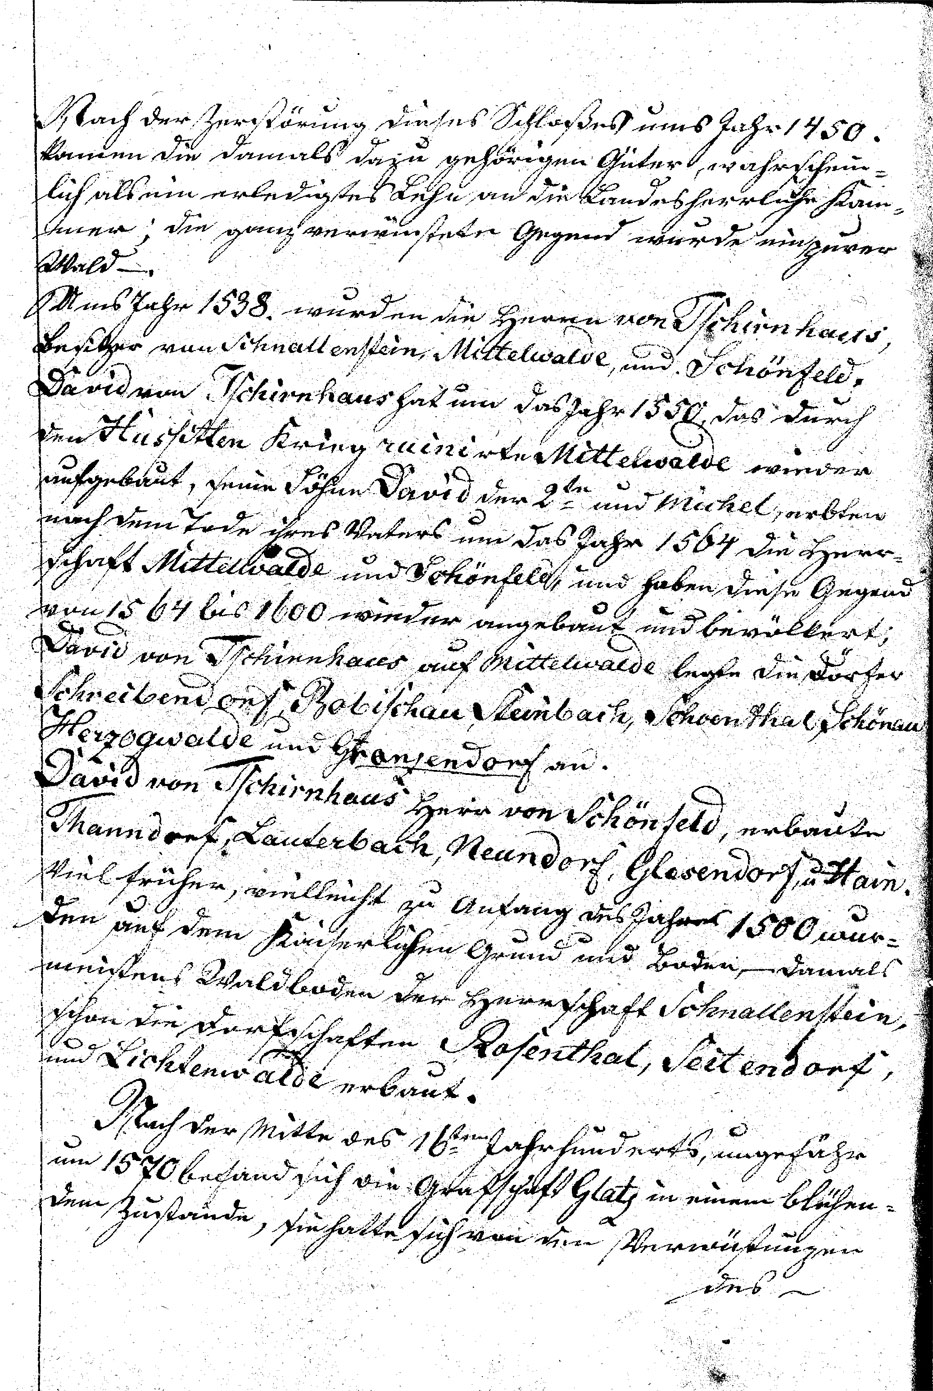 Nach der Zerstörung dieses Schloßes ums Jahr 1450.
kamen die damals dazu gehörigen Güter, wahrschein-
lich als ein erledigtes Lehn an die Landesherrliche Kam-
mer; die ganz verwüstete Gegend wurde ein purer
Wald —.
Ums Jahr 1538. wurden die Herrn von Tschirnhaus,
Besitzer von Schnallenstein, Mittelwalde, und Schönfeld.
David von Tschirnhaus hat um das Jahr 1550, das durch
den Hussitten Krieg ruinirte Mittelwalde wieder
aufgebaut, seine Söhne David der 2te und Michel, erbten
nach dem Tode ihres Vaters um das Jahr 1564 die Herr-
schaft Mittelwalde und Schönfeld, und haben diese Gegend
von 1564 bis 1600 wieder angebaut und bevölkert;
David von Tschirnhaus auf Mittelwalde legte die Dörfer
Schreibendorf, Bobischau, Steinbach, Schoenthal, Schönau
Herzogwalde und Granzendorf an.
David von Tschirnhaus Herr von Schönfeld, erbaute
Thanndorf, Lauterbach, Neundorf, Glasendorf, u Hain.
Viel früher, vielleicht zu Anfang des Jahres 1500 wur-
den auf dem Kaiserlichen Grund und Boden, — damals
meistens Waldboden der Herrschaft Schnallenstein,
schon die Dorfschaften Rosenthal, Seitendorf,
und Lichtenwalde erbaut.
Nach der Mitte des 16ten Jahrhunderts, ungefähr
um 1570 befand sich die Grafschaft Glatz in einem blühen-
dem Zustande, sie hatte sich von den Verwüstungen
des